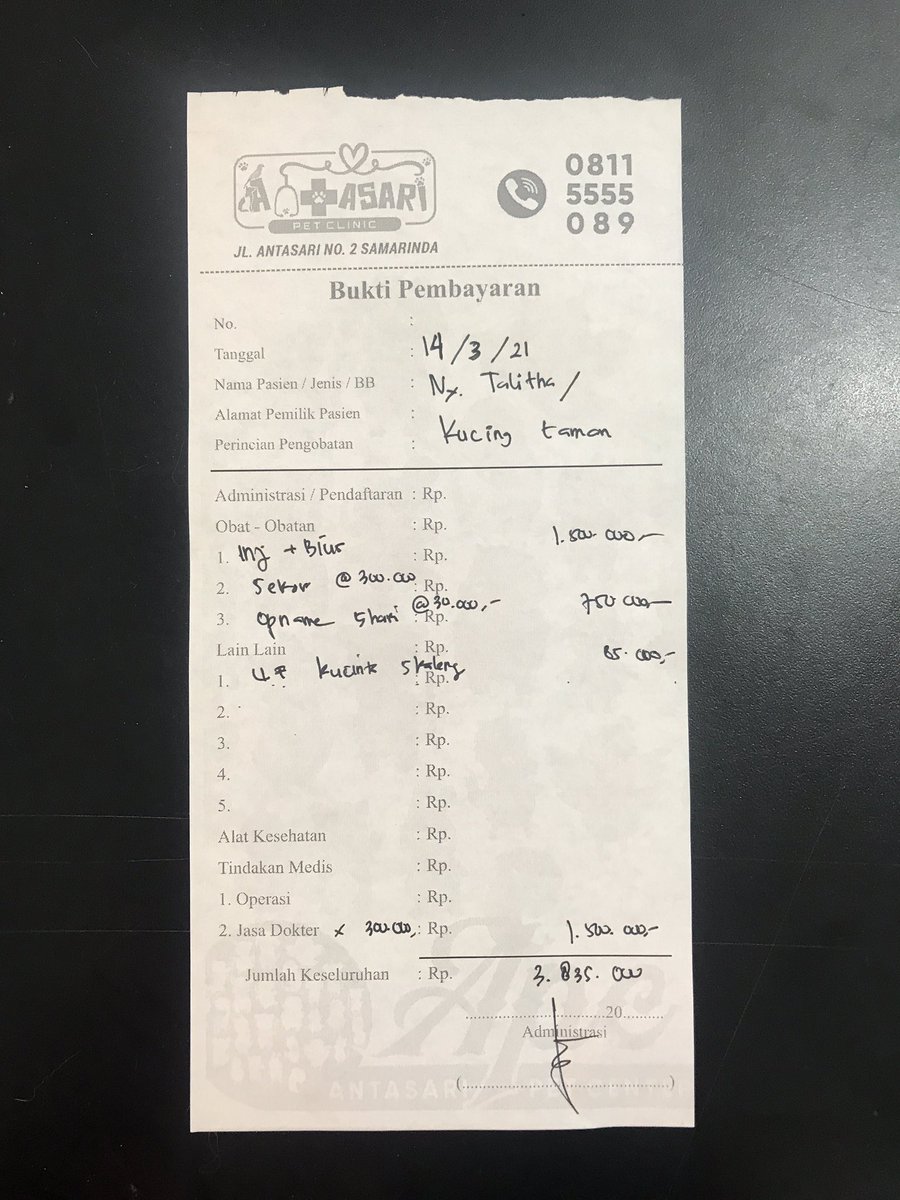 ANTASARI
PET CLINIC
JL. ANTASARI NO. 2 SAMARINDA
0811
5555
089
Bukti Pembayaran
No. :
Tanggal : 14/3/21
Nama Pasien / Jenis / BB : Ny. Talitha /
Alamat Pemilik Pasien :
Kucing taman
Perincian Pengobatan :
Administrasi / Pendaftaran : Rp.
Obat - Obatan : Rp. 1.500.000,-
1. Inj + Bius : Rp.
2. Sekor @ 300.000 : Rp.
@ 30.000,- 750.000,-
3. opname 5 hari : Rp.
Lain Lain : Rp. 85.000,-
1. kucink : Rp.
2. : Rp.
3. : Rp.
4. : Rp.
5. : Rp.
Alat Kesehatan : Rp.
Tindakan Medis : Rp.
1. Operasi : Rp.
2. Jasa Dokter x 300.000, : Rp. 1.500.000,-
Jumlah Keseluruhan : Rp. 3.835.000
20
Administrasi
(..........)
ANTASARI PET CENTER